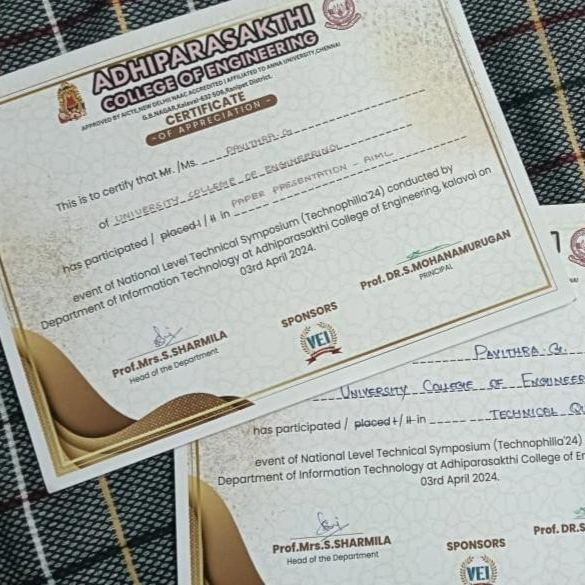 ADHIPARASAKTHI
COLLEGE OF ENGINEERING
APPROVED BY AICTE, NEW DELHI NAAC ACCREDITED | AFFILIATED TO ANNA UNIVERSITY, CHENNAI
G.B.NAGAR, Kalavai-632 506, Ranipet District.
CERTIFICATE
- OF APPRECIATION -
This is to certify that Mr. /Ms. PAVITHRA.G
of UNIVERSITY COLLEGE OF ENGINEERING
has participated / placed I / II in PAPER PRESENTATION - AIML
event of National Level Technical Symposium (Technophilia'24) conducted by
Department of Information Technology at Adhiparasakthi College of Engineering, kalavai on
03rd April 2024.
Prof.Mrs.S.SHARMILA
Head of the Department
SPONSORS
VEI
Prof. DR.S.MOHANAMURUGAN
PRINCIPAL
PAVITHRA.G
UNIVERSITY COLLEGE OF ENGINEER
has participated / placed I / II in TECHNICAL
event of National Level Technical Symposium (Technophilia'24)
Department of Information Technology at Adhiparasakthi College of En
03rd April 2024.
Prof.Mrs.S.SHARMILA
Head of the Department
SPONSORS
VEI
Prof. DR.S